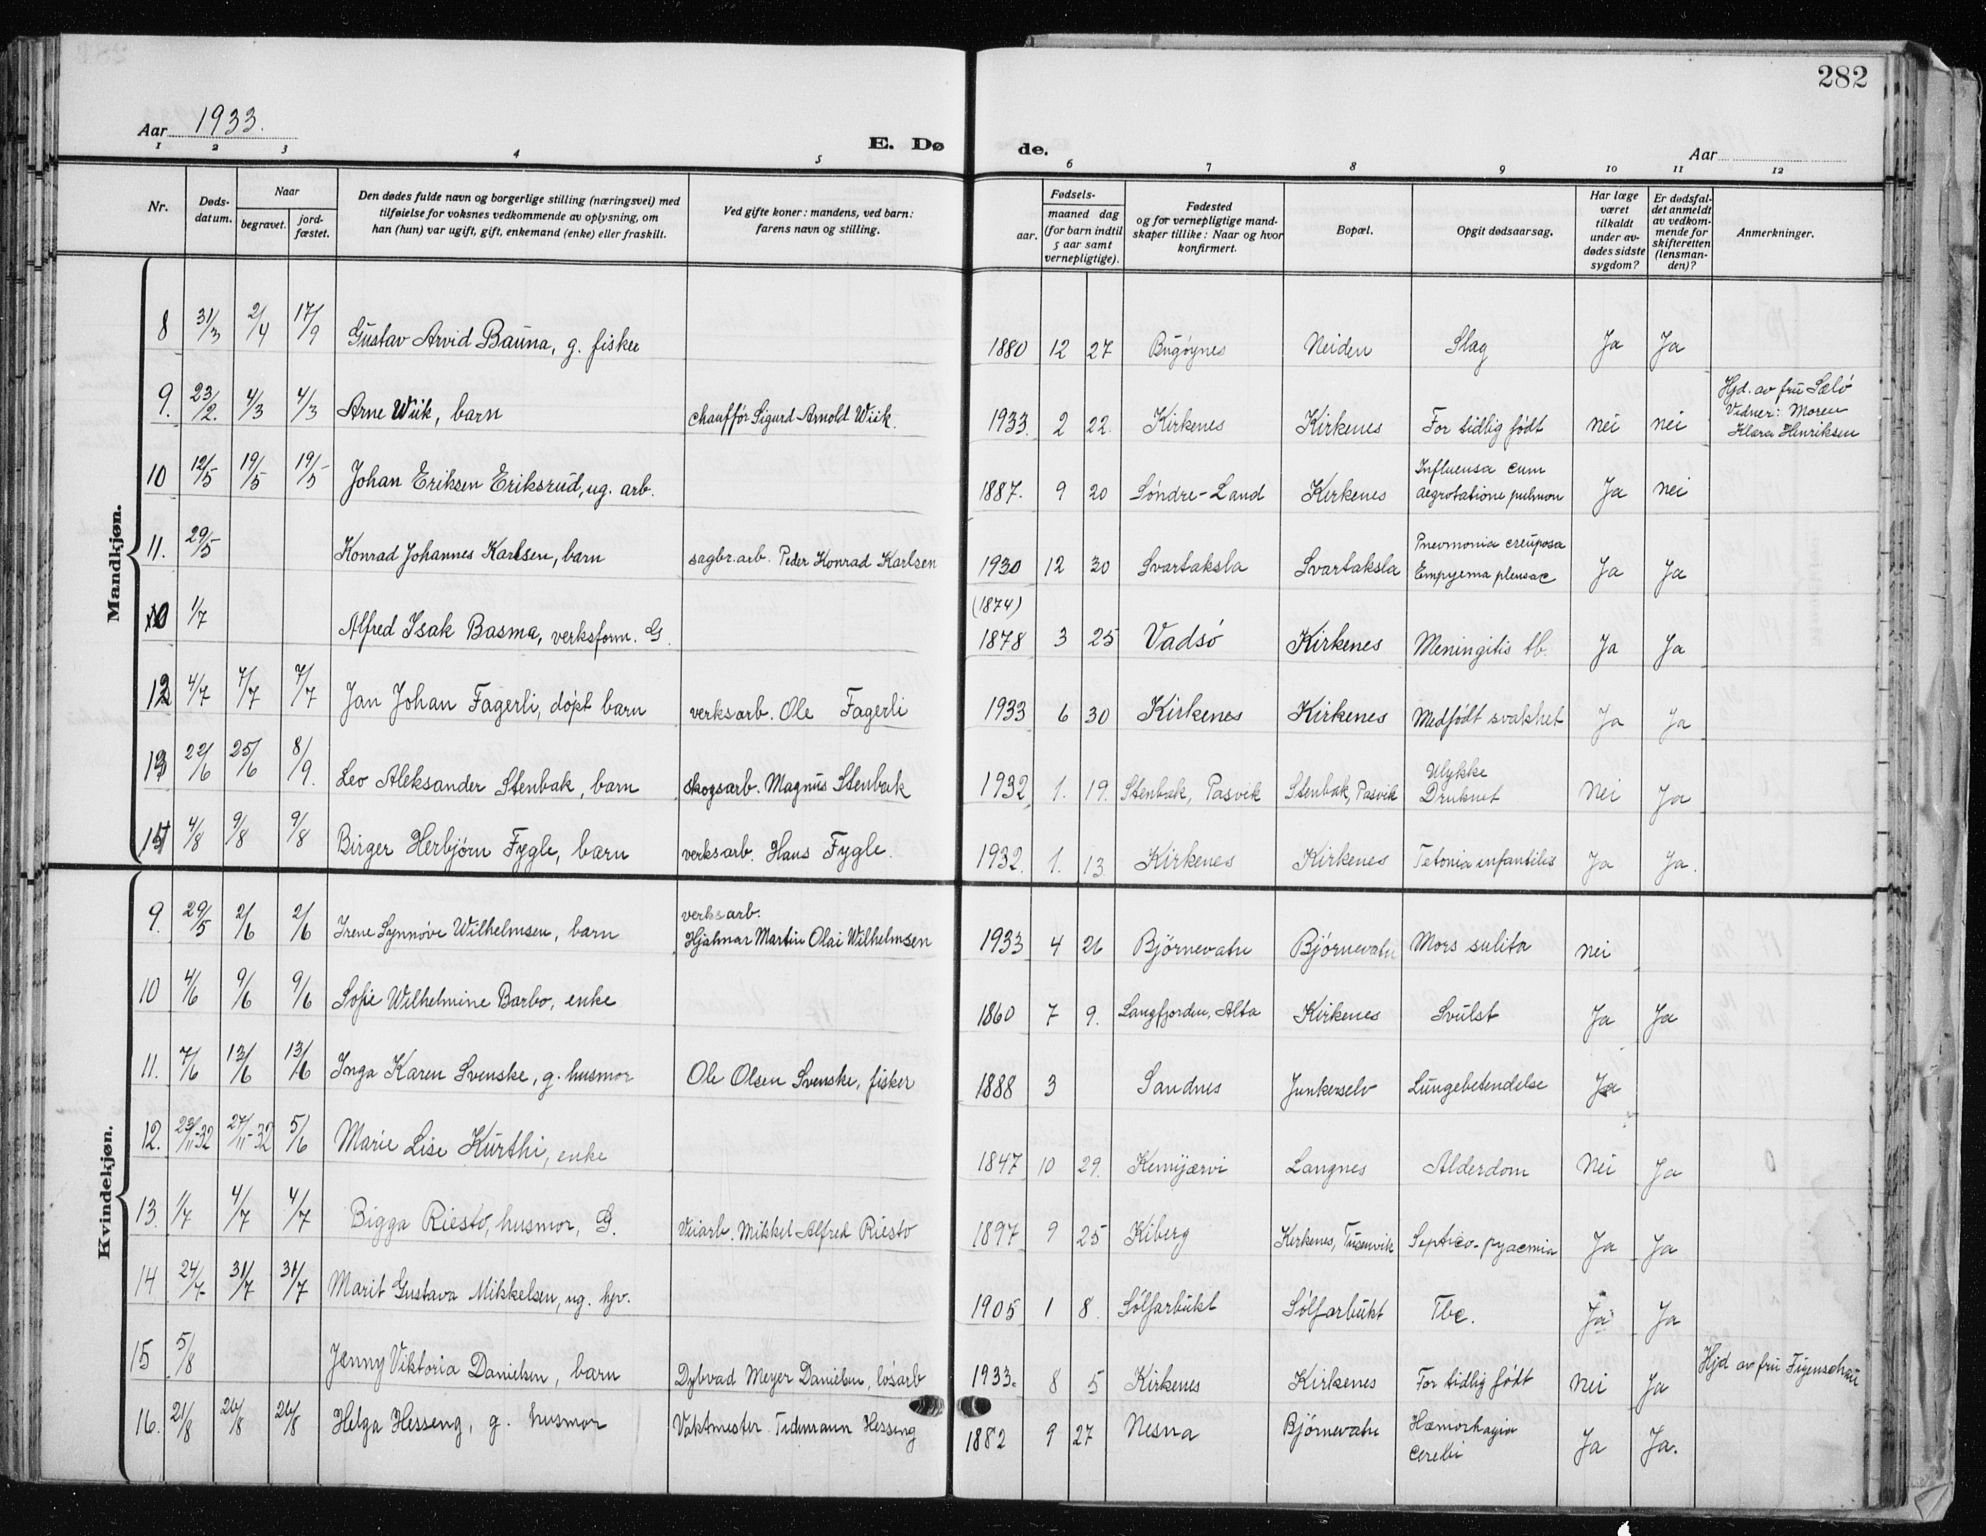 282
Aar 1933.
E. Dø de.
Aar
1 2 3 4 5 6 7 8 9 10 11 12
Nr.
Døds-
datum.
Naar
begravet.
jord-
fæstet.
Den dødes fulde navn og borgerlige stilling (næringsvei) med
tilføielse for voksnes vedkommende av oplysning, om
han (hun) var ugift, gift, enkemand (enke) eller fraskilt.
Ved gifte koner: mandens, ved barn:
farens navn og stilling.
Fødsels-
aar.
maaned dag
(for barn indtil
5 aar samt
vernepligtige).
Fødested
og for vernepligtige mand-
skaper tillike: Naar og hvor
konfirmert.
Bopæl.
Opgit dødsaarsag.
Har læge
været
tilkaldt
under av-
dødes sidste
sygdom?
Er dødsfal-
det anmeldt
av vedkom-
mende for
skifteretten
(lensman-
den)?
Anmerkninger.
Mandkjøn.
8 31/3 2/4 17/9 Gustav Arvid Bauna, g. fisker 1880 12 27 Bugøynes Neiden Slag Ja Ja
9. 23/2. 4/3 4/3 Arne Wiik, barn chauffør Sigurd Arnold Wiik. 1933. 2 22. Kirkenes Kirkenes For tidlig født nei nei Hjd. av fru Sælø
Vidner: Moren
Klara Henriksen
10 12/5 19/5 19/5 Johan Eriksen Eriksrud, ug. arb. 1887. 9 20 Søndre-Land Kirkenes Influensa cum
aegrotatione pulmon Ja nei
11. 29/5 Konrad Johannes Karlsen, barn sagbr.arb. Peder Konrad Karlsen 1930 12 30 Svartaksla Svartaksla Pnevmonia creuposa
Empyema pleurae Ja Ja
1/7 Alfred Isak Basma, verksform. G. (1874)
1878 3 25 Vadsø Kirkenes Meningitis tb. Ja Ja
12 4/7 7/7 7/7 Jan Johan Fagerli, døpt barn verksarb. Ole Fagerli 1933 6 30 Kirkenes Kirkenes Medfødt svakhet Ja Ja
13 22/6 25/6 8/9. Leo Aleksander Stenbak, barn skogsarb. Magnus Stenbak 1932 1. 19. Stenbak, Pasvik Stenbak, Pasvik Ulykke
Druknet Nei Ja
4/8 9/8 9/8 Birger Herbjørn Fygle, barn verksarb. Hans Fygle. 1932. 1. 13. Kirkenes Kirkenes Tetonia infantilis Ja Ja.
Kvindekjøn.
9. 29/5 2/6 2/6 Irene Synnøve Wilhelmsen, barn verksarb.
Hjalmar Martin Olai Wilhelmsen 1933 4 26 Bjørnevatn Bjørnevatn Mors subita nei
10 4/6 9/6 9/6 Sofie Wilhelmine Barbo, enke 1860 7 9. Langfjorden, Alta Kirkenes Svulst Ja Ja
11. 7/6 13/6 13/6 Inga Karen Svenske, g. husmor Ole Olsen Svenske, fisker 1888 3 Sandnes Junkerselv Lungebetendelse Ja
12. 23/11-32 27/11-32 5/6 Marie Lise Kurthi, enke 1847 10 29. Kemijærvi Langnes Alderdom Nei Ja
13. 1/7 4/7 4/7 Bigga Riesto, husmor, G. Veiarb. Mikkel Alfred Riesto 1897 9 25 Kiberg Kirkenes, Tusenvik Septico-pyaemia Ja Ja
14 24/7 31/7 31/7 Marit Gustava Mikkelsen, ug. hjv. 1905 1 8. Sølfarbukt Sølfarbukt Tbc. Ja Ja
15 5/8 Jenny Viktoria Danielsen, barn Dybvad Meyer Danielsen, løsarb 1933. 8 5 Kirkenes Kirkenes For tidlig født Nei Ja Hjd av fru Figenschau
16. 21/8 26/8 26/8 Helga Hesseng, g. husmor Vaktmester Tidemann Hesseng 1882 9 27 Nesna Bjørnevatn Hæmorhagia
cerebi Ja Ja.